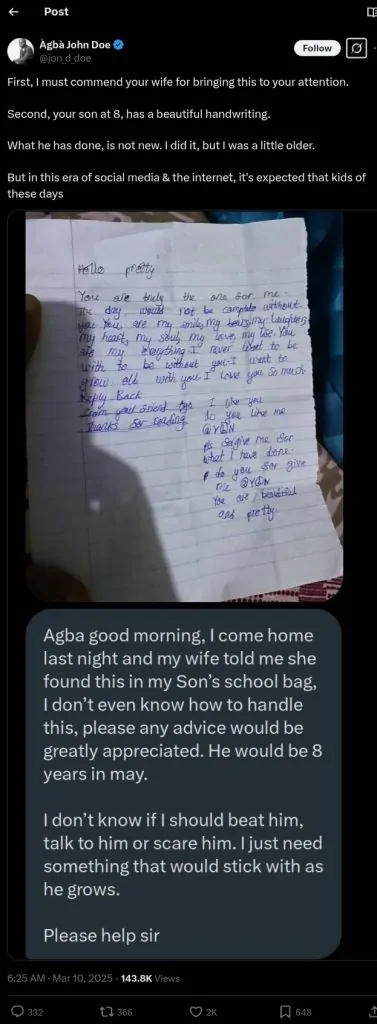 Post
Àgbà John Doe
@jon_d_doe
Follow
First, I must commend your wife for bringing this to your attention.
Second, your son at 8, has a beautiful handwriting.
What he has done, is not new. I did it, but I was a little older.
But in this era of social media & the internet, it's expected that kids of
these days
Hello pretty
You are truly the one for me.
the day would not be complete without
you You, are my smile, my laughter,
my heart, my soul, my love, my life. You
are my everything I never want to be
with to be without you. I want to
grow old with you I love you so much.
Reply Back
from your friend
Thanks for reading
I like you
do you like me
Y N
forgive me for
what I have done.
do you for give
me Y N
You are beautiful
and pretty
Agba good morning, I come home
last night and my wife told me she
found this in my Son's school bag,
I don't even know how to handle
this, please any advice would be
greatly appreciated. He would be 8
years in may.
I don't know if I should beat him,
talk to him or scare him. I just need
something that would stick with as
he grows.
Please help sir
6:25 AM · Mar 10, 2025 · 143.8K Views
332 366 2K 648